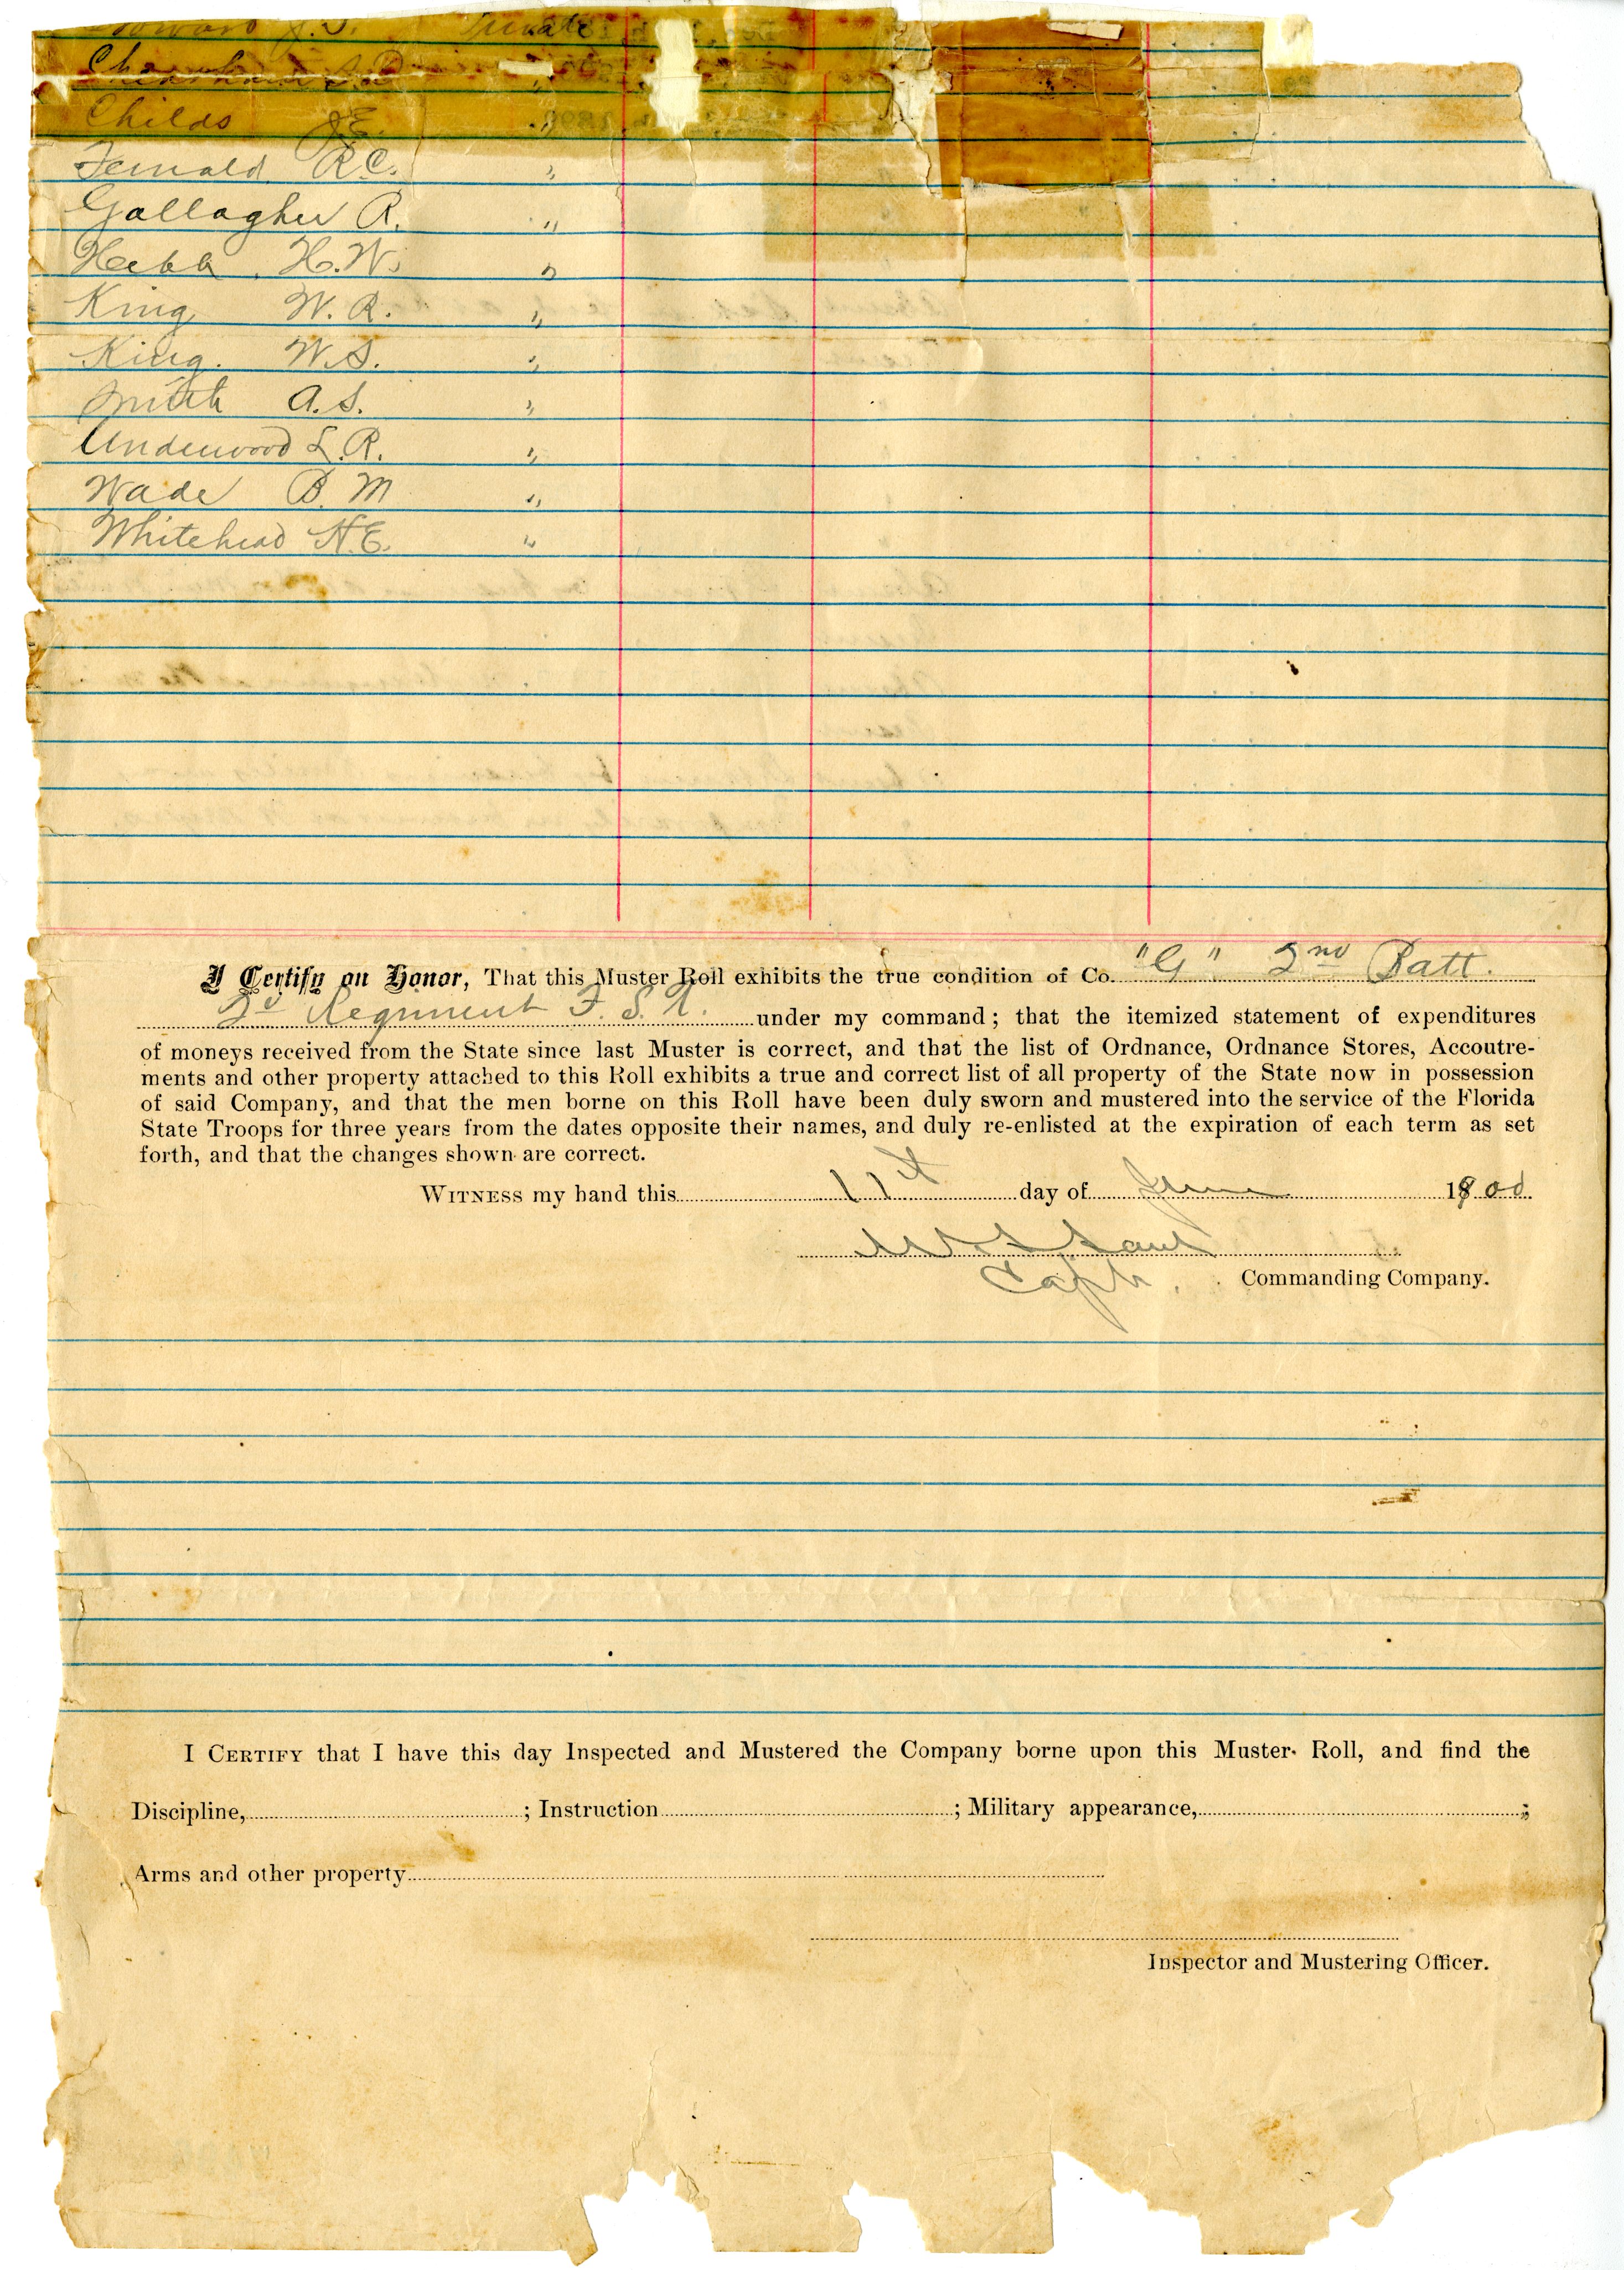 Private
Childs J.E. "
Fernald R.C. "
Gallagher R. "
Hebb H.W. "
King W.R. "
King. W.S. "
Smith A.S. "
Underwood L.R. "
Wade B.M "
Whitehead H.E. "
I Certify on Honor, That this Muster Roll exhibits the true condition of Co. "G" 2nd Batt.
Regiment F.S.T. under my command; that the itemized statement of expenditures
of moneys received from the State since last Muster is correct, and that the list of Ordnance, Ordnance Stores, Accoutre-
ments and other property attached to this Roll exhibits a true and correct list of all property of the State now in possession
of said Company, and that the men borne on this Roll have been duly sworn and mustered into the service of the Florida
State Troops for three years from the dates opposite their names, and duly re-enlisted at the expiration of each term as set
forth, and that the changes shown are correct.
Witness my hand this 11th day of June 1900
Capt. Commanding Company.
I Certify that I have this day Inspected and Mustered the Company borne upon this Muster Roll, and find the
Discipline, ; Instruction ; Military appearance, ;
Arms and other property
Inspector and Mustering Officer.